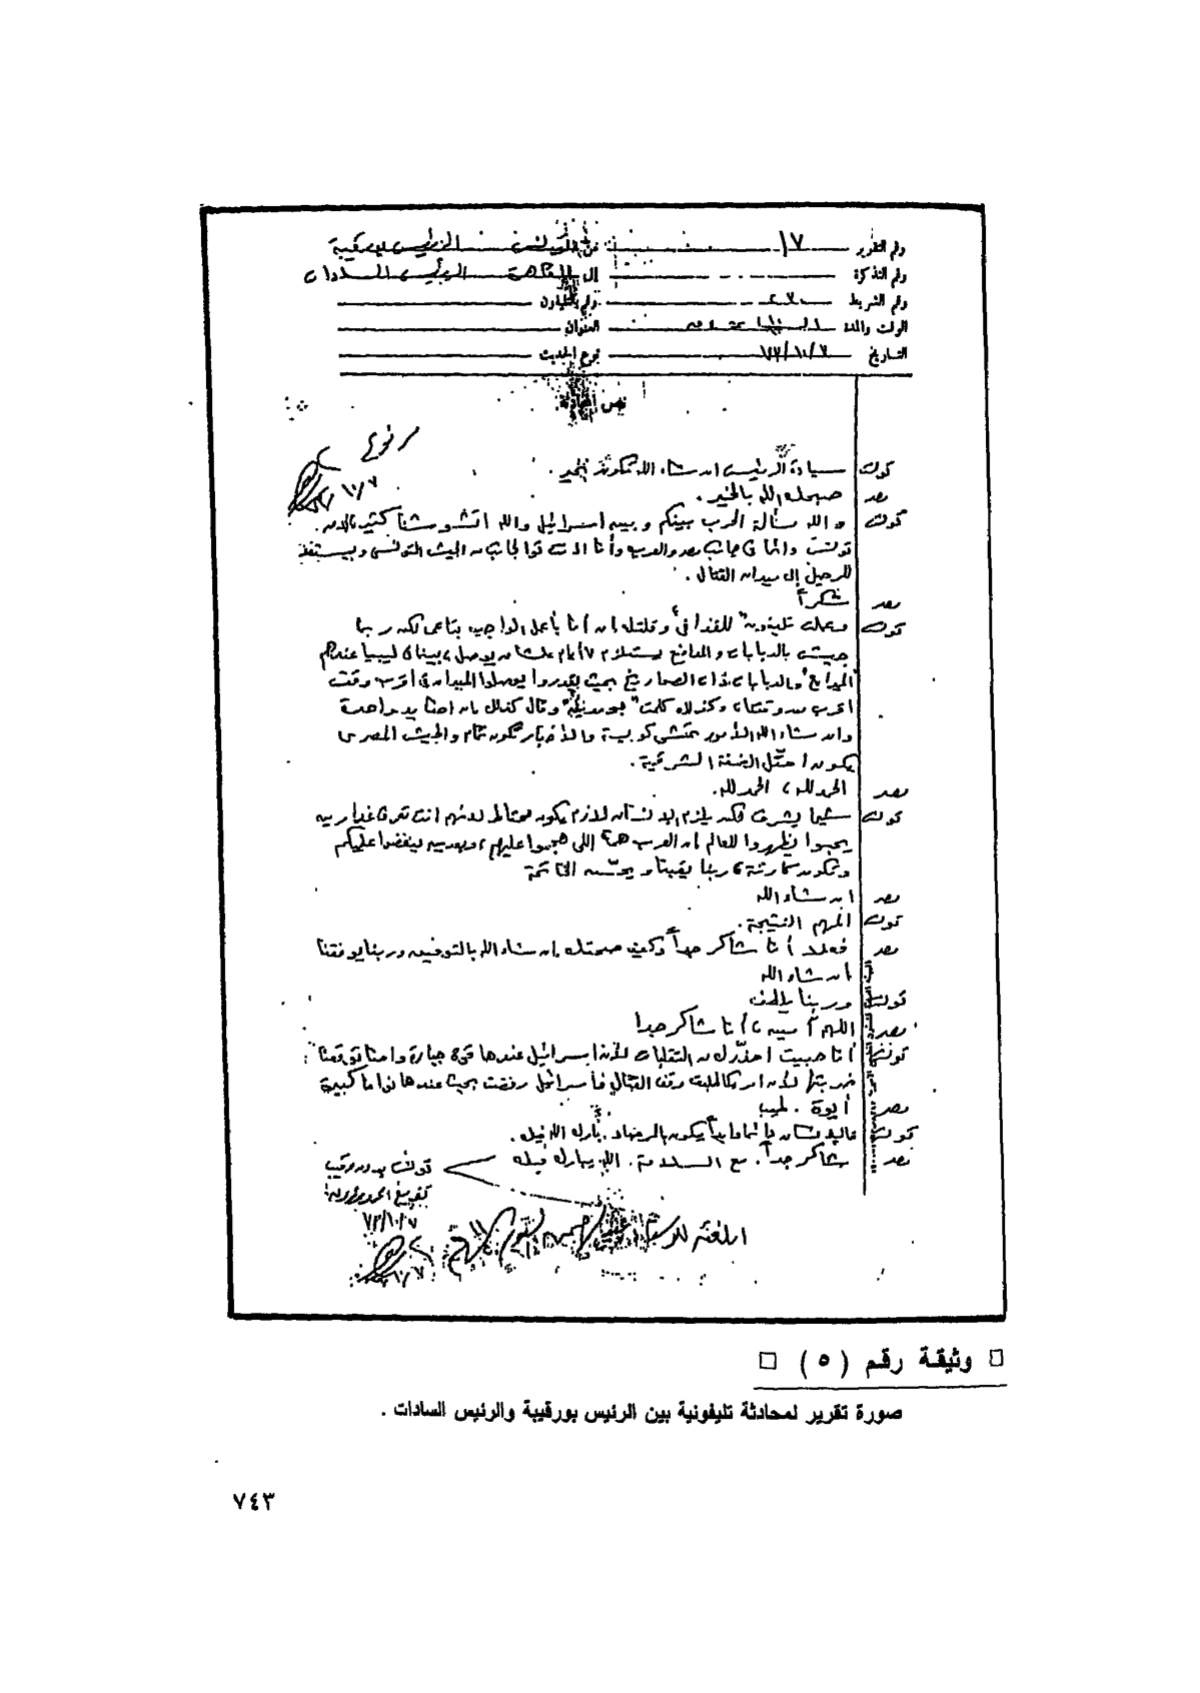 رقم التقرير ١٧ من تونس الرئيس بورقيبة
رقم التذكرة إلى القاهرة الرئيس السادات
رقم الشريط رقم التليفون
الوقت والمدة العنوان
التاريخ ٧٣/١٠/٧ نوع الحديث
نص المحادثة
مرفوع
٧٣/١٠/٧
تونس سيادة الرئيس إن شاء الله تكونوا بخير .
مصر صبحك الله بالخير .
تونس والله مسألة الحرب بينكم وبين إسرائيل والله
تونس دائما في جانب مصر والعرب وأنا من الجيش التونسي وبيستعد
للرحيل إلى ميدان القتال .
مصر شكراً
تونس وعملت تليفون للقذافي وقلتله إن أنا بأعمل الواجب بتاعي لكن ربما
جيش بالدبابات والمدافع ٧ أيام علشان يوصل ، بينما في ليبيا عندهم
الميراج والدبابات ذات الصواريخ بحيث يقدروا يوصلوا الميدان في أقرب وقت
أقرب من وقتنا ، وكذلك كلمت " بومدين " وقال كذلك بإن إحنا يد واحدة
وإن شاء الله الأمور تمشي كويسة والأخبار تكون تمام والجيش المصري
يكون احتل الضفة الشرقية .
مصر الحمد لله ، الحمد لله .
تونس شيئا يشرف لكن يلزم الإنسان لازم يكون محتاط لأنهم أنت تعرف غدارين
يحبوا يظهروا للعالم إن العرب هما اللي هجموا عليهم ، وبعدين ينقضوا عليكم
وتكون كارثة ، ربنا يقينا ويحسن الخاتمة
مصر إن شاء الله
تونس المهم النتيجة .
مصر فعلا أنا شاكر جداً وكيف صحتك إن شاء الله بالتوفيق وربنا يوفقنا
إن شاء الله
تونس وربنا يلطف
مصر اللهم آمين ، أنا شاكر جدا
تونس أنا حبيت أحذرك من التقلبات لأن إسرائيل عندها قوة جبارة وإحنا توقعنا
ضربتها لأن أمريكا طلبت وقف القتال فإسرائيل رفضت بحيث عندها كبيرة
مصر أيوة . طيب
تونس فالإنسان دائما وأبداً يكون بالمرصاد . بارك الله فيك .
مصر شاكر جداً . مع السلامة . الله يبارك فيك
تونس بدون رقيب
٧٣/١٠/٧
أبلغته
□ وثيقة رقم ( ٥ ) □
صورة تقرير لمحادثة تليفونية بين الرئيس بورقيبة والرئيس السادات .
٧٤٣